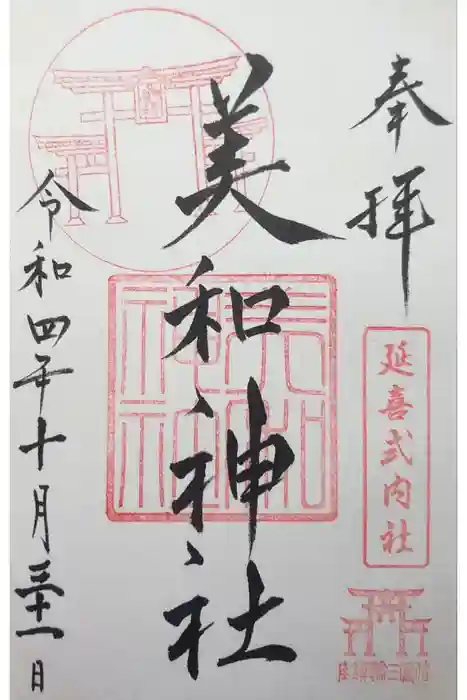 奉拝
延喜式内社
美和神社
美和神社
令和四年十月三十一日